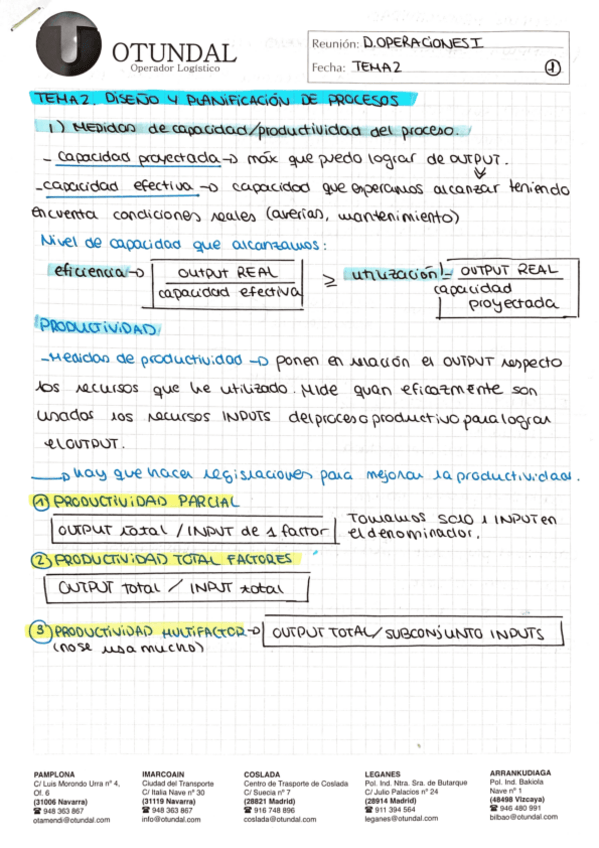 OTUNDAL
Operador Logístico
Reunión: D.OPERACIONES I
Fecha: TEMA 2
1
TEMA 2. DISEÑO Y PLANIFICACIÓN DE PROCESOS
1) MEDIDAS de capacidad/productividad del proceso.
- capacidad proyectada → máx que puedo lograr de OUTPUT.
- capacidad efectiva → capacidad que esperamos alcanzar teniendo
en cuenta condiciones reales (averías, mantenimiento)
Nivel de capacidad que alcanzamos:
eficiencia → OUTPUT REAL / capacidad efectiva ≥ utilización = OUTPUT REAL / capacidad proyectada
PRODUCTIVIDAD
- Medidas de productividad → ponen en relación el OUTPUT respecto
los recursos que he utilizado. Mide quan eficazmente son
usados los recursos INPUTS del proceso productivo para lograr
el OUTPUT.
→ hay que hacer legislaciones para mejorar la productividad.
1 PRODUCTIVIDAD PARCIAL
OUTPUT total / INPUT de 1 factor
Tomamos solo 1 INPUT en
el denominador.
2 PRODUCTIVIDAD TOTAL FACTORES
OUTPUT total / INPUT total
3 PRODUCTIVIDAD MULTIFACTOR → OUTPUT TOTAL / SUBCONJUNTO INPUTS
(no se usa mucho)
PAMPLONA
C/ Luis Morondo Urra nº 4,
Of. 6
(31006 Navarra)
☎ 948 363 867
otamendi@otundal.com
IMARCOAIN
Ciudad del Transporte
C/ Italia Nave nº 30
(31119 Navarra)
☎ 948 363 867
info@otundal.com
COSLADA
Centro de Trasporte de Coslada
C/ Suecia nº 7
(28821 Madrid)
☎ 916 748 896
coslada@otundal.com
LEGANES
Pol. Ind. Ntra. Sra. de Butarque
C/ Julio Palacios nº 24
(28914 Madrid)
☎ 911 394 564
leganes@otundal.com
ARRANKUDIAGA
Pol. Ind. Bakiola
Nave nº 1
(48498 Vizcaya)
☎ 946 480 991
bilbao@otundal.com